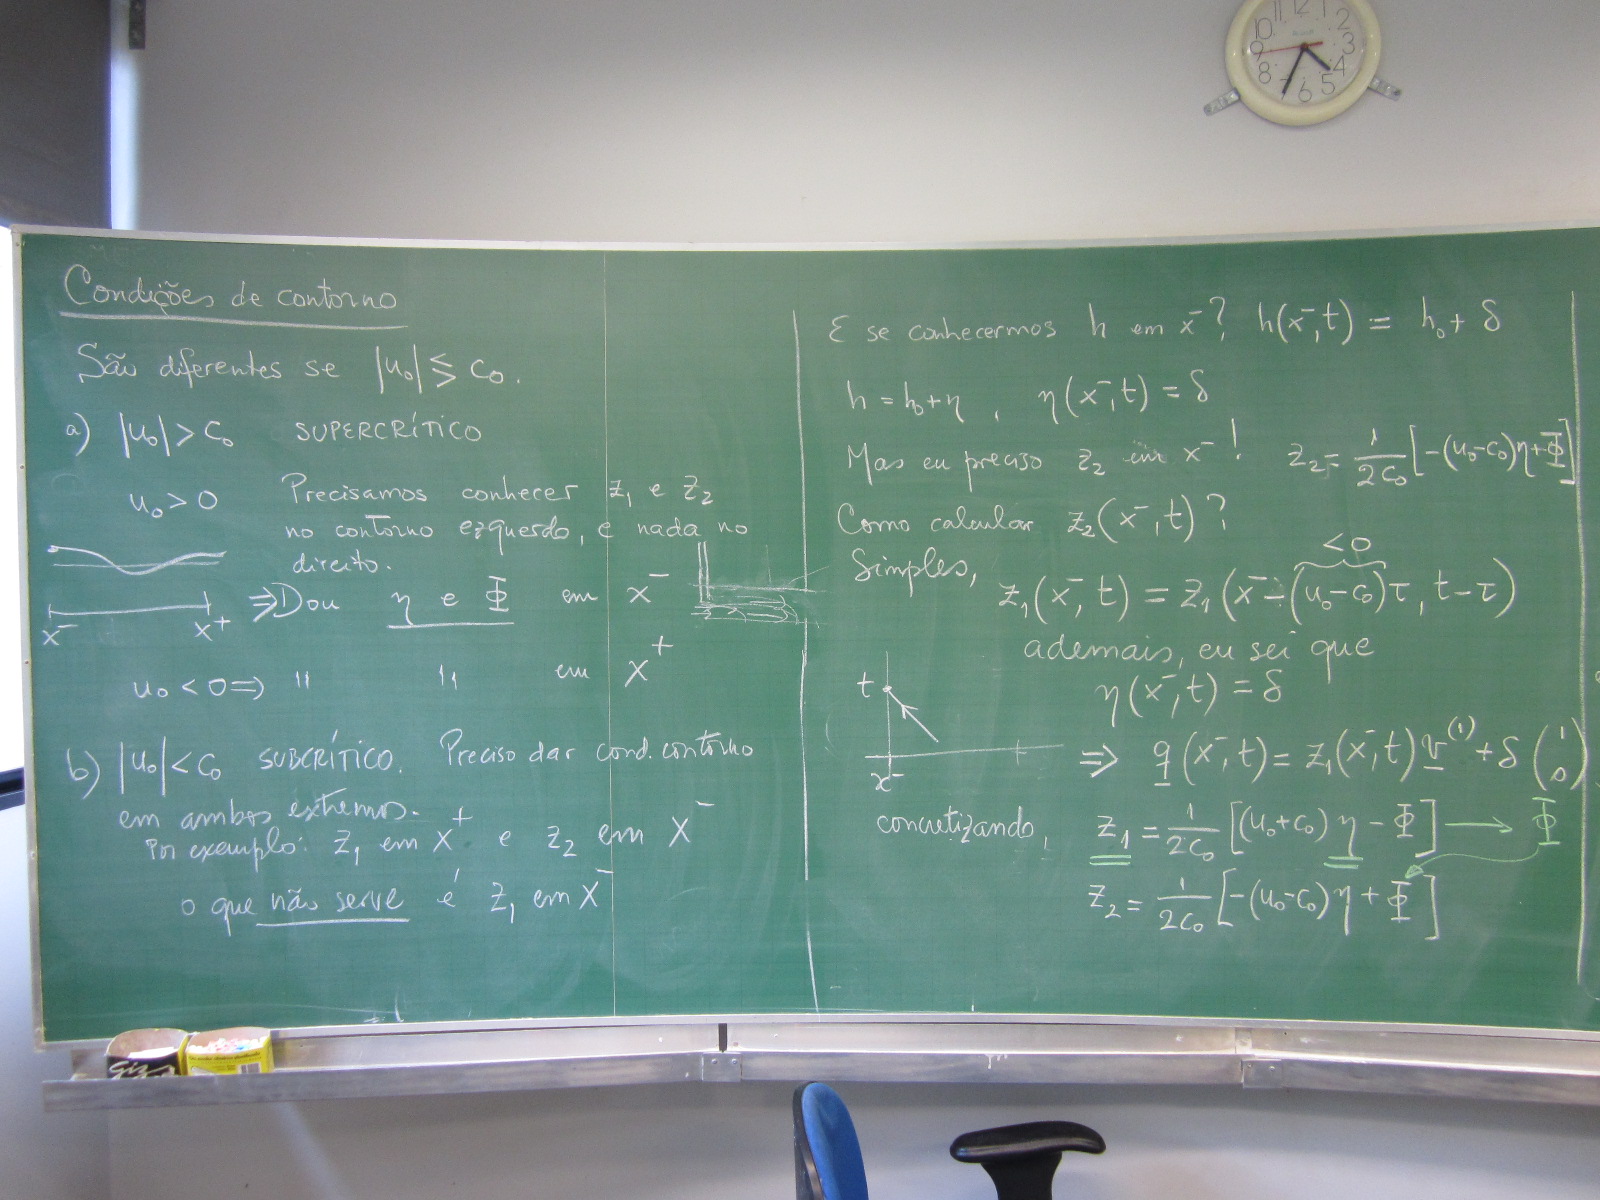 Condições de contorno
São diferentes se |u₀| ≶ c₀.
a) |u₀| > c₀ SUPERCRÍTICO
u₀ > 0 Precisamos conhecer z₁ e z₂
no contorno ezquerdo, e nada no
direito.
x⁻ x⁺
⇒ Dou η e Φ em x⁻
u₀ < 0 ⇒ " " em x⁺
b) |u₀| < c₀ SUBCRÍTICO. Preciso dar cond. contorno
em ambos extremos.
Por exemplo: z₁ em x⁺ e z₂ em x⁻
o que não serve é z₁ em x⁻
E se conhecermos h em x⁻? h(x⁻, t) = h₀ + δ
h = h₀ + η , η(x⁻, t) = δ
Mas eu preciso z₂ em x⁻! z₂ = 1/2c₀ [-(u₀-c₀)η + Φ]
Como calcular z₂(x⁻, t)?
Simples,
<0
z₁(x⁻, t) = z₁(x⁻ - (u₀-c₀)τ, t-τ)
ademais, eu sei que
η(x⁻, t) = δ
t
x⁻
⇒ q(x⁻, t) = z₁(x⁻, t) v⁽¹⁾ + δ (1 0)
concretizando, z₁ = 1/2c₀ [(u₀+c₀) η - Φ] → Φ
z₂ = 1/2c₀ [-(u₀-c₀) η + Φ]
10 11 12 1 2 3 4 5 6 7 8 9
Giz